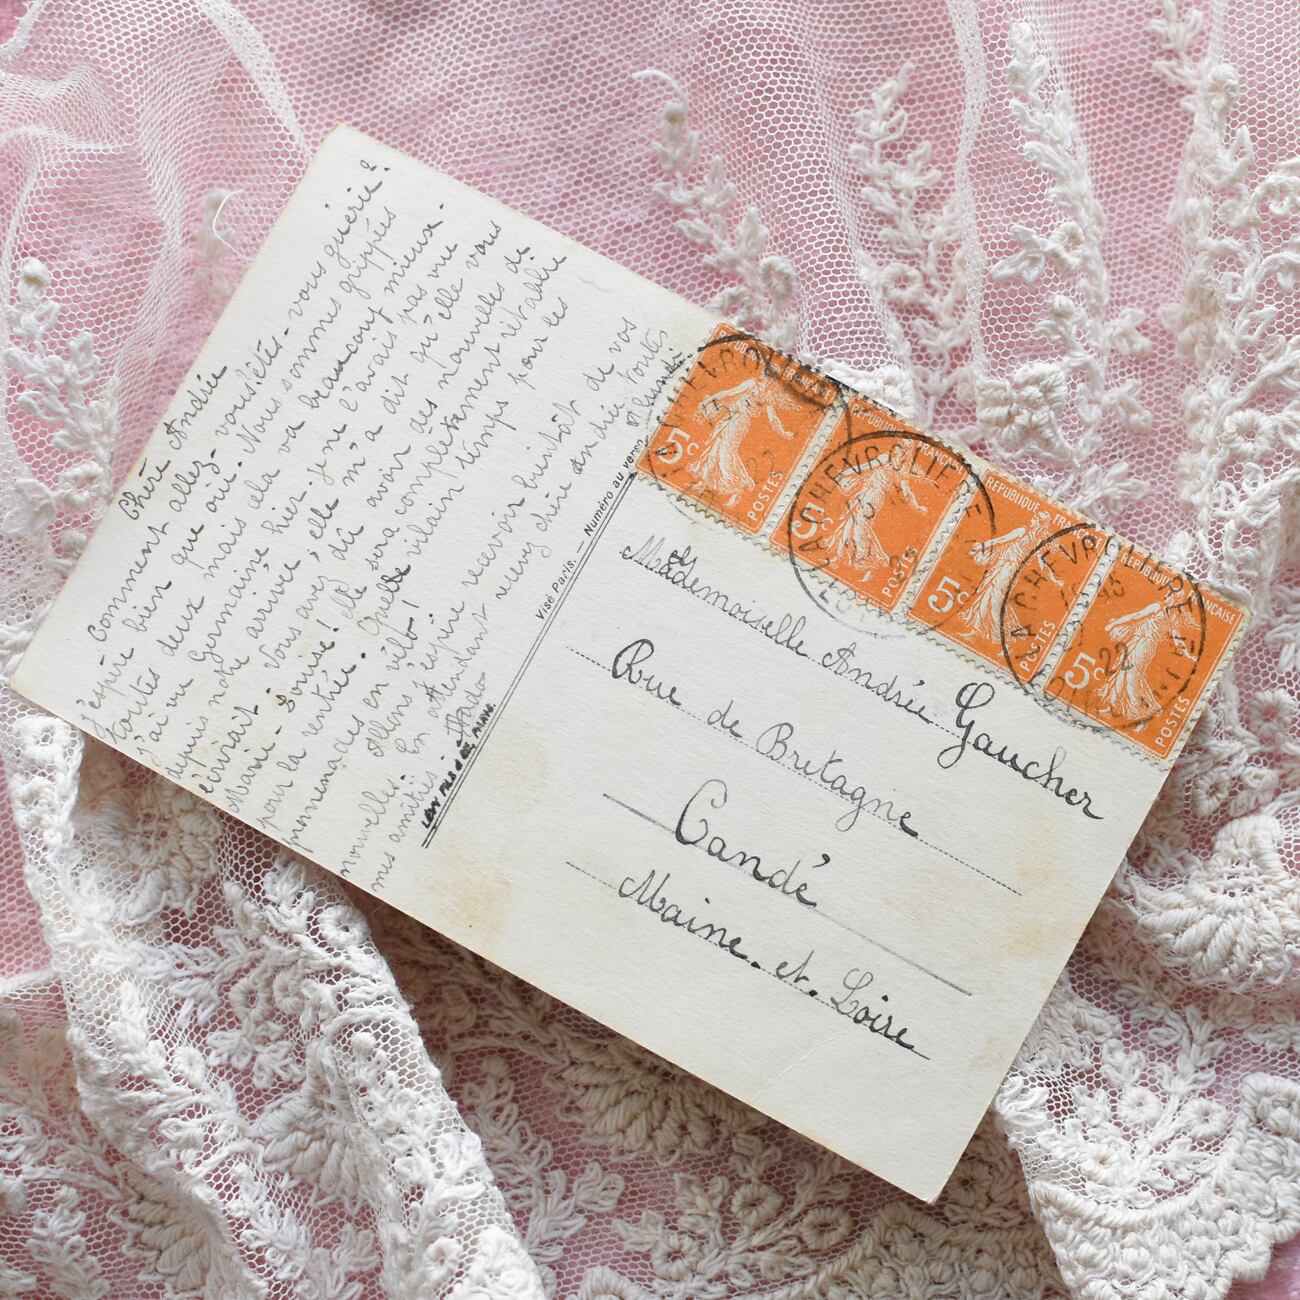 Chère Andrée
Comment allez-vous? êtes-vous guérie?
J'espère bien que oui. Nous sommes grippés
toutes deux mais cela va beaucoup mieux.
J'ai vu Germaine hier. je ne l'avais pas vue
depuis notre arrivée, elle m'a dit qu'elle vous
écrivait. Vous avez dû avoir des nouvelles de
Marie-Louise! elle sera complètement rétablie
pour la rentrée. Quelle vilain temps pour les
promenades en vélo!
Allons j'espère recevoir bientôt de vos
nouvelles. En attendant recevez chère Andrée toutes
mes amitiés.
LÉVY FILS & Cie, PARIS.
Visé Paris. — Numéro au verso
REPUBLIQUE FRANÇAISE
5c POSTES
REPUBLIQUE FRANÇAISE
5c POSTES
REPUBLIQUE FRANÇAISE
5c POSTES
REPUBLIQUE FRANÇAISE
5c POSTES
LA CHEVROLIERE
LA CHEVROLIERE
LA CHEVROLIERE
22
Mademoiselle Andrée Gaucher
Rue de Bretagne
Candé
Maine-et-Loire